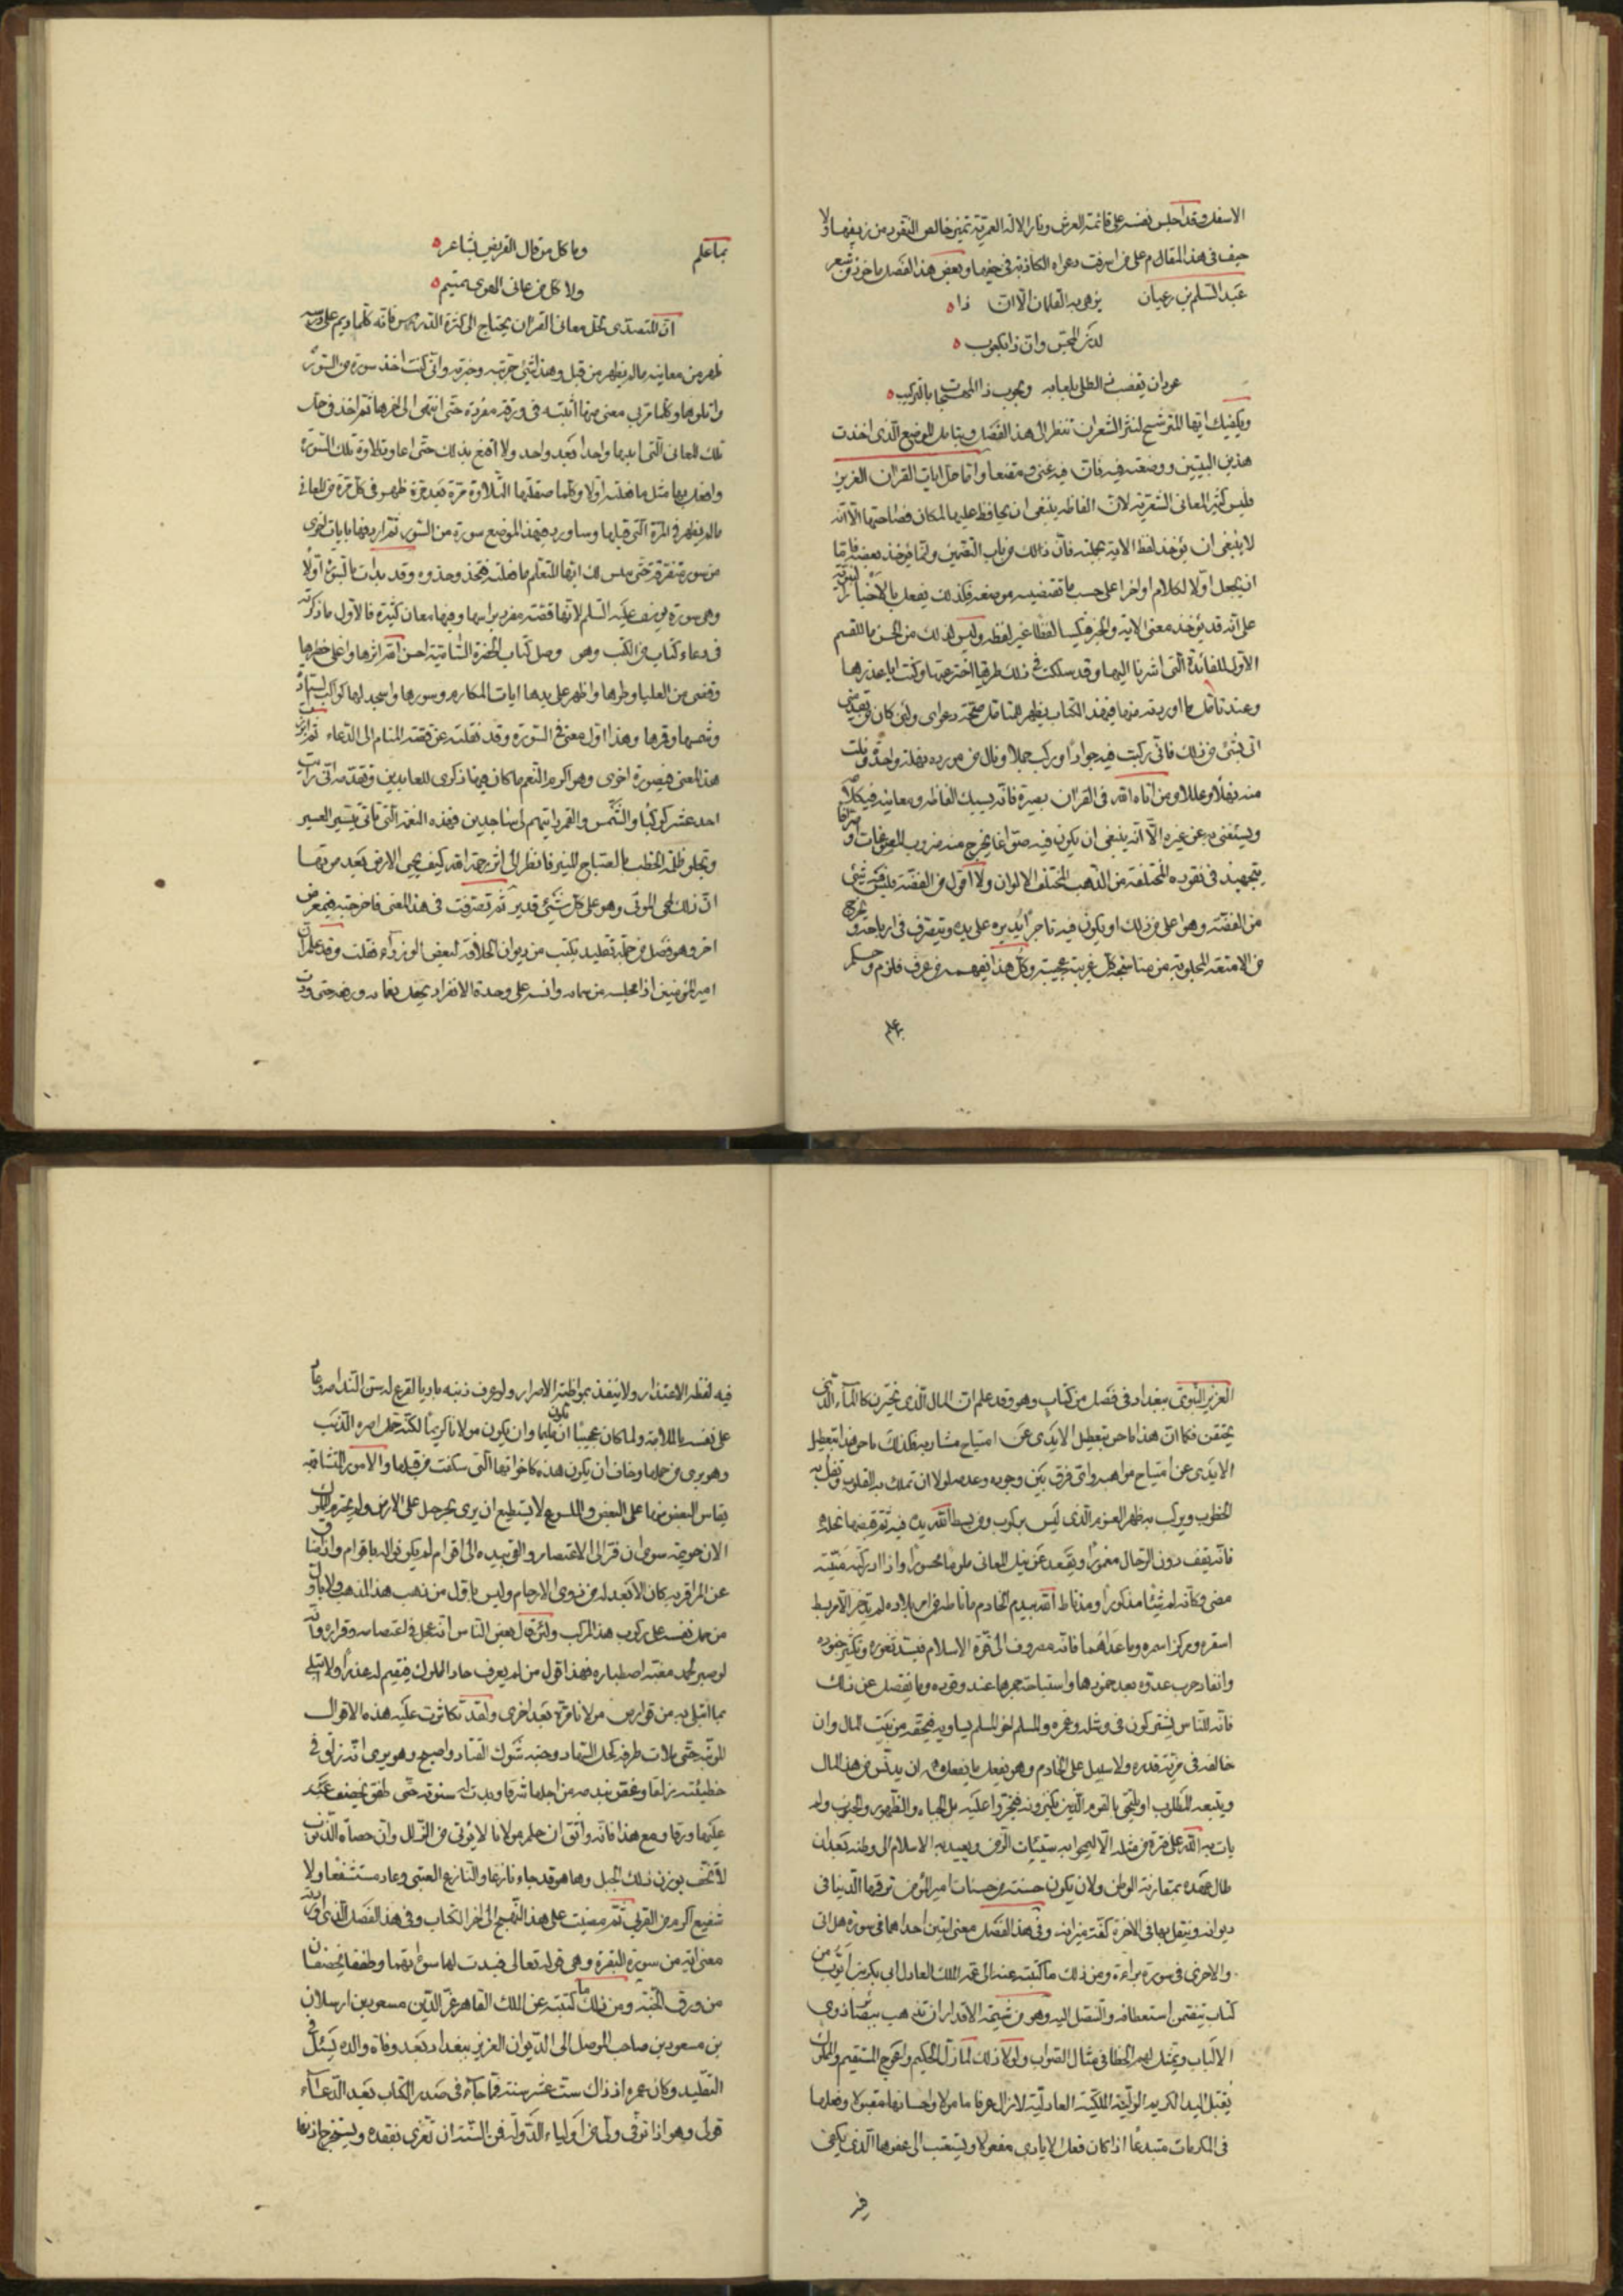 الاسفل وقد اجلس نفسه على قائمة العرش ونار الالة العمرية تميز خالص النقود من زيفها ولا
حيف في هذا المقال على من اسرفت دعواه الكاذبة في وبعض هذا الفصل ماخوذ من شعر
عبد السلم بن رغبان يزهى به القلمان الا ان ذا
لدن المجس وان ذا لكعوب
عودان يقضب ذا الطلى بلعابه ويجوب ذا المهجات بالتركيب
ويكفيك ايها المترشح لنثر الشعر ان تنظر الى هذا الفصل وتتامل الموضع الذي اخذت
هذين البيتين ووضعته فيه فان فيه غنى ومقنعا واما حل ايات القران العزيز
فليس كنثر المعاني الشعرية لان الفاظه ينبغي ان يحافظ عليها لمكان فصاحتها الا انه
لا ينبغي ان يؤخذ لفظ الاية بجملته فان ذلك من باب التضمين وانما يؤخذ بعضه فاما
ان يجعل اولا لكلام او اخرا على حسب ما تقتضيه موضعه وكذلك يفعل بالاخبار النبوية
على انه قد يؤخذ معنى الاية والخبر فيكسا لفظا غير لفظه وليس لذلك من الحسن ما للقسم
الاول للفائدة التي اشرنا اليها وقد سلكت في ذلك طريقا اخترعتها وكنت ابا عذرها
وعند تامل ما اوردته منها في هذا الكتاب يظهر للمتامل صحة دعواى ولئن كان من تقدمني
اتى بشيء من ذلك فاني ركبت فيه جوادا وركب جملا ونال من مورده نهلة واحدة ونلت
منه نهلا وعللا ومن اتاه الله في القران بصيرة فانه يسبك الفاظه ومعانيه في كلامه
ويستغنى به عن غيره الا انه ينبغي ان يكون فيه صواغا يخرج منه ضروب المصوغات او صرافا
يتجهبذ في نقوده المختلفة من الذهب المختلف الالوان ولا اقول من الفضة فليس فيه شيء
من الفضة وهو اعلى من ذلك او يكون فيه تاجرا يديره على يده ويتصرف في ارباحه ويخرج
من الامتعة المجلوبة من مناسجه كل غريبة عجيبة وكل هذا يفهمه من عرف فلزم وحكم
بما علم
بما علم وما كل من قال القريض بشاعر
ولا كل من عانى الهوى بمتيم
ان المتصدى لحل معاني القران يحتاج الى كثرة الدرس فانه كلما ديم على درسه
ظهر من معانيه ما لم يظهر من قبل وهذا شيء جربته وخبرته واني كنت اخذ سورة من السور
واتلوها وكلما مر بي معنى منها اثبته في ورقة مفردة حتى انتهى الى اخرها ثم اخذ في حل
تلك المعاني التي اثبتها واحدا بعد واحد ولا اقنع بذلك حتى اعاود تلاوة تلك السورة
وافعل بها مثل ما فعلته اولا وكلما صقلتها التلاوة مرة بعد مرة ظهر في كل مرة من المعاني
ما لم يظهر في المرة التي قبلها وساورد في هذا الموضع سورة من السور ثم اردفها بايات اخرى
من سور متفرقة حتى يتبين لك ايها المتعلم ما فعلته فتحذو حذوه وقد بدات بالسورة اولا
وهي سورة يوسف عليه السلم لانها قصة مفردة براسها وفيها معان كثيرة فالاول ما ذكرته
في دعاء كتاب من الكتب وهو وصل كتاب الحضرة السامية احسن الله اثرها واعلى خطرها
وقضى من العليا وطرها واظهر على يدها ايات المكارم وسورها واسجد لها كواكب السيادة
وشمسها وقمرها وهذا اول معنى في السورة وقد نقلته عن قصة المنام الى الدعاء ثم ابرزت
هذا المعنى في صورة اخرى وهو اكرم النعم ما كان فيها ذكرى للعابدين وتقدمه اني رايت
احد عشر كوكبا والشمس والقمر رايتهم لي ساجدين فهذه النعمة التي تاتي بتيسير العسير
وتجلو ظلمة الخطب بالصباح المنير فانظر الى اثر رحمة الله كيف يحيي الارض بعد موتها
ان ذلك لمحي الموتى وهو على كل شيء قدير ثم تصرفت في هذا المعنى فاخرجته في معرض
اخر وهو فصل من جملة تقليد يكتب من ديوان الخلافة لبعض الوزراء فقلت وقد علمت ان
امير المؤمنين
العزيز النبوي ببغداد في فصل من كتاب وهو وقد علم ان المال الذي يختزن كالماء الذي
يحتقن فكما ان هذا ياجن بتعطيل الايدى عن امتياح مشاربه فكذلك ياجن هذا بتعطيل
الايدى عن امتياح مواهبه واي فرق بين وجوده وعدمه لولا ان تملك به القلوب وتفل به
الخطوب ويركب به ظهر العزم الذي ليس بركوب ومن بسط الله يده فيه ثم قبضها بخله
فانه يقف دون الرجال مغمورا ويقعد عن نيل المعالي ملوما محسورا واذا ادركته منيته
مضى وكانه لم يكن شيئا مذكورا ومذ ناط الله بيد الخادم ما ناطه من امر بلاده لم يدخر الا مربط
اشقره ومركز اسمره وما عداهما فانه مصروف الى نصرة الاسلام في سد ثغوره وتكثير جنوده
وايقاد حرب عدوه بعد خمودها واستباحة جمرها عند وقوده وما يفضل عن ذلك
فانه للناس يشتركون في وشله وغمره والمسلم اخو المسلم يساويه في حقه من بيت المال وان
خالفه في مزية قدره ولا سبيل على الخادم وهو يفعل ما يفعله ان يدنس من هذا المال
ويتبعه المطلوب او يلحق بالقوم الذين يكنزونه فيجزوا عليه بكي الجباه والظهور والجنوب ولم
يات به الله على فترة من مثله الا ليمحوا به سيئات الزمن ويعيد به الاسلام الى وطنه بعد ان
طال عهده بمفارقة الوطن ولان يكون حسنة من حسنات امير المؤمنين توقرها الدنيا في
ديوانه ويثقل بها في الاخرة كفة ميزانه وفي هذا الفصل معنى ايتين احداهما في سورة هل اتى
والاخرى في سورة براءة ومن ذلك ما كتبته عنه الى عمه الملك العادل ابي بكر بن ايوب من
كتاب يتضمن استعطافه والتنصل اليه وهو من شيمة الاقدار ان تذهب ببصائر ذوي
الالباب وتمثل لهم الخطا في مثال الصواب ولولا ذلك لما زل الحكيم واعوج المستقيم والمملوك
يقبل اليد الكريمة المولوية الملكية العادلية لازال عرفا مامولا واحسانها مقبولا وفعلها
في المكرمات مبتدعا اذا كان فعل الايادي مفعولا ويستعتب الى عفوها الذي يكفي
فيه
فيه لفظة الاعتذار ولا ينفد بمواظبة الاصرار ولو عرف ذنبه باديا لقرع له سن الندم وعا
على نفسه بالملامة ولما كان عجيبا ان تكون مليما وان يكون مولانا كريما لكنه حمل اصره الذنب
وهو برى من حملها وخاف ان يكون هذه كاخواتها التي سلفت من قبلها والامور المتشابهة
يقاس البعض منها على البعض والملسوع لا يستطيع ان يرى مجر حبل على الارض ولم يجترم المملوك
الان جريمة سوى ان فر الى الاعتصام والقى بيده الى اقوام لم يكن في باقوام واذا نبا
عن المرا قربه كان الابعد له من ذوي الارحام وليس باول من ذهب هذا المذهب ولا باول
من حمل نفسه على ركوب هذا المركب ولئن قال بعض الناس انه عجل في اعتصامه وفراره وانه
لو صبر لحمد مغبة اصطباره فهذا قول من لم يعرف حاد الملوك فيقيم له عذرا ولا ابتلى
بما ابتلى به من قوارص مولانا مرة بعد اخرى ولقد تكاثرت عليه هذه الاقوال
المؤنبة حتى ملات طرفه كحل السهاد وجنبه شوك القتاد واصبح وهو يرى انه زلق في
خطيئته زلقا وغص بندمه من اجلها شرقا وبدت له سوءته حتى طفق يخصف عليه
عليها ورقا ومع هذا فانه واثق ان حلم مولانا لا يؤتى من الزلل وان حصاة الذنوب
لا تخف بوزن ذلك الجبل وها هو قد جاء نازعا والنازع العتبى وعاد مستشفعا ولا
شفيع اكرم من القربى ثم مضيت على هذا النهج الى اخر الكتاب وفي هذا الفصل الذي اوردته
معنى اية من سورة البقرة وهي قوله تعالى فبدت لهما سوءاتهما وطفقا يخصفان
من ورق الجنة ومن ذلك ما كتبته عن الملك القاهر عز الدين مسعود بن ارسلان
بن مسعود بن صاحب الموصل الى الديوان العزيز ببغداد بعد وفاة والده يسئل في
التقليد وكان عمره اذ ذاك ست عشر سنة فما جاء في صدر الكتاب بعد الدعاء
قولي وهو اذا توفى ولي من اولياء الدولة فمن السنة ان تعزى بفقده ويستخرج اذنها